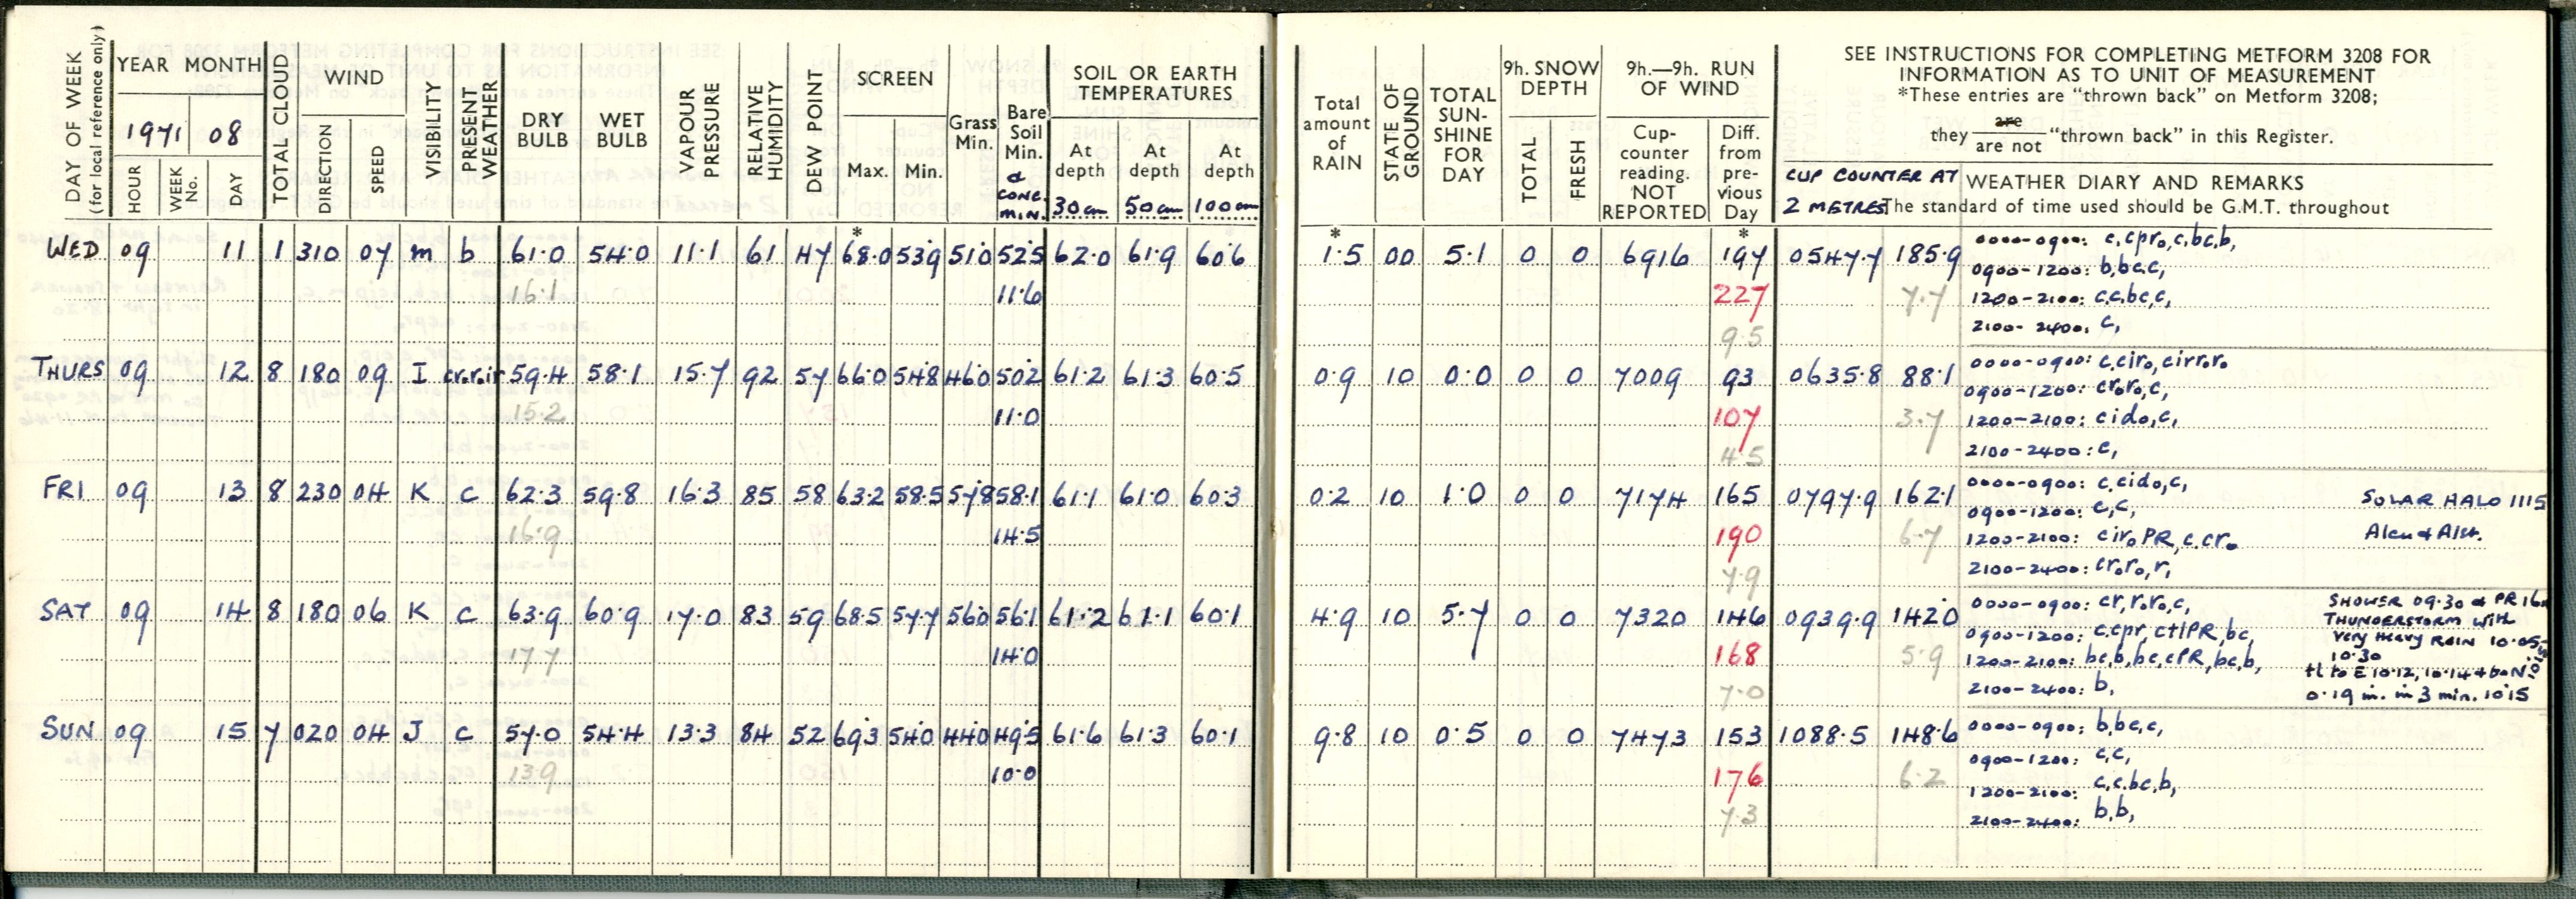 DAY OF WEEK
(for local reference only)
YEAR MONTH
1971 08
HOUR
WEEK No.
DAY
TOTAL CLOUD
WIND
DIRECTION
SPEED
VISIBILITY
PRESENT WEATHER
DRY BULB
WET BULB
VAPOUR PRESSURE
RELATIVE HUMIDITY
DEW POINT
SCREEN
Max. Min.
Grass Min.
Bare Soil Min.
& CONC. MIN.
SOIL OR EARTH TEMPERATURES
At depth 30cm
At depth 50cm
At depth 100cm
Total amount of RAIN
STATE OF GROUND
TOTAL SUN-SHINE FOR DAY
9h. SNOW DEPTH
TOTAL
FRESH
9h.—9h. RUN OF WIND
Cup-counter reading. NOT REPORTED
Diff. from pre-vious Day
SEE INSTRUCTIONS FOR COMPLETING METFORM 3208 FOR
INFORMATION AS TO UNIT OF MEASUREMENT
*These entries are "thrown back" on Metform 3208;
they are / are not "thrown back" in this Register.
CUP COUNTER AT
2 METRES
WEATHER DIARY AND REMARKS
The standard of time used should be G.M.T. throughout
* * *
WED 09 11 1 310 07 m b 61.0 54.0 11.1 61 47 68.0 53.9 51.0 52.5 62.0 61.9 60.6 1.5 00 5.1 0 0 6916 197 0547.7 185.9 0000-0900: c,cpro,c,bc,b,
0900-1200: b,bc,c,
16.1 11.6 227 7.7 1200-2100: c,c,bc,c,
9.5 2100-2400: c,
THURS 09 12 8 180 09 I cr.r.ir 59.4 58.1 15.7 92 57 66.0 54.8 46.0 50.2 61.2 61.3 60.5 0.9 10 0.0 0 0 7009 93 0635.8 88.1 0000-0900: c,ciro,cirroro
0900-1200: croro,c,
15.2 11.0 107 3.7 1200-2100: cido,c,
4.5 2100-2400: c,
FRI 09 13 8 230 04 K c 62.3 59.8 16.3 85 58 63.2 58.5 57.8 58.1 61.1 61.0 60.3 0.2 10 1.0 0 0 7174 165 0797.9 162.1 0000-0900: c,cido,c, SOLAR HALO 1115
0900-1200: c,c,
16.9 14.5 190 6.7 1200-2100: ciro PR, c.cro
7.9 2100-2400: croro,r,
SAT 09 14 8 180 06 K c 63.9 60.9 17.0 83 59 68.5 57.7 56.0 56.1 61.2 61.1 60.1 4.9 10 5.7 0 0 7320 146 0939.9 142.0 0000-0900: cr,r.ro,c, SHOWER 09.30 & PR
0900-1200: c.cpr,ctlPR,bc, THUNDERSTORM with
very Heavy RAIN 10.05-
17.7 14.0 168 5.9 1200-2100: bc,b,bc,cPR,bc,b, 10.30
tl to E 10.12, 10.14 & to N
7.0 2100-2400: b, 0.19 in. in 3 min. 10.15
SUN 09 15 7 020 04 J c 57.0 54.4 13.3 84 52 69.3 54.0 44.0 49.5 61.6 61.3 60.1 9.8 10 0.5 0 0 7473 153 1088.5 148.6 0000-0900: b,bc,c,
0900-1200: c,c,
13.9 10.0 176 6.2 1200-2100: c,c.bc,b,
7.3 2100-2400: b,b,